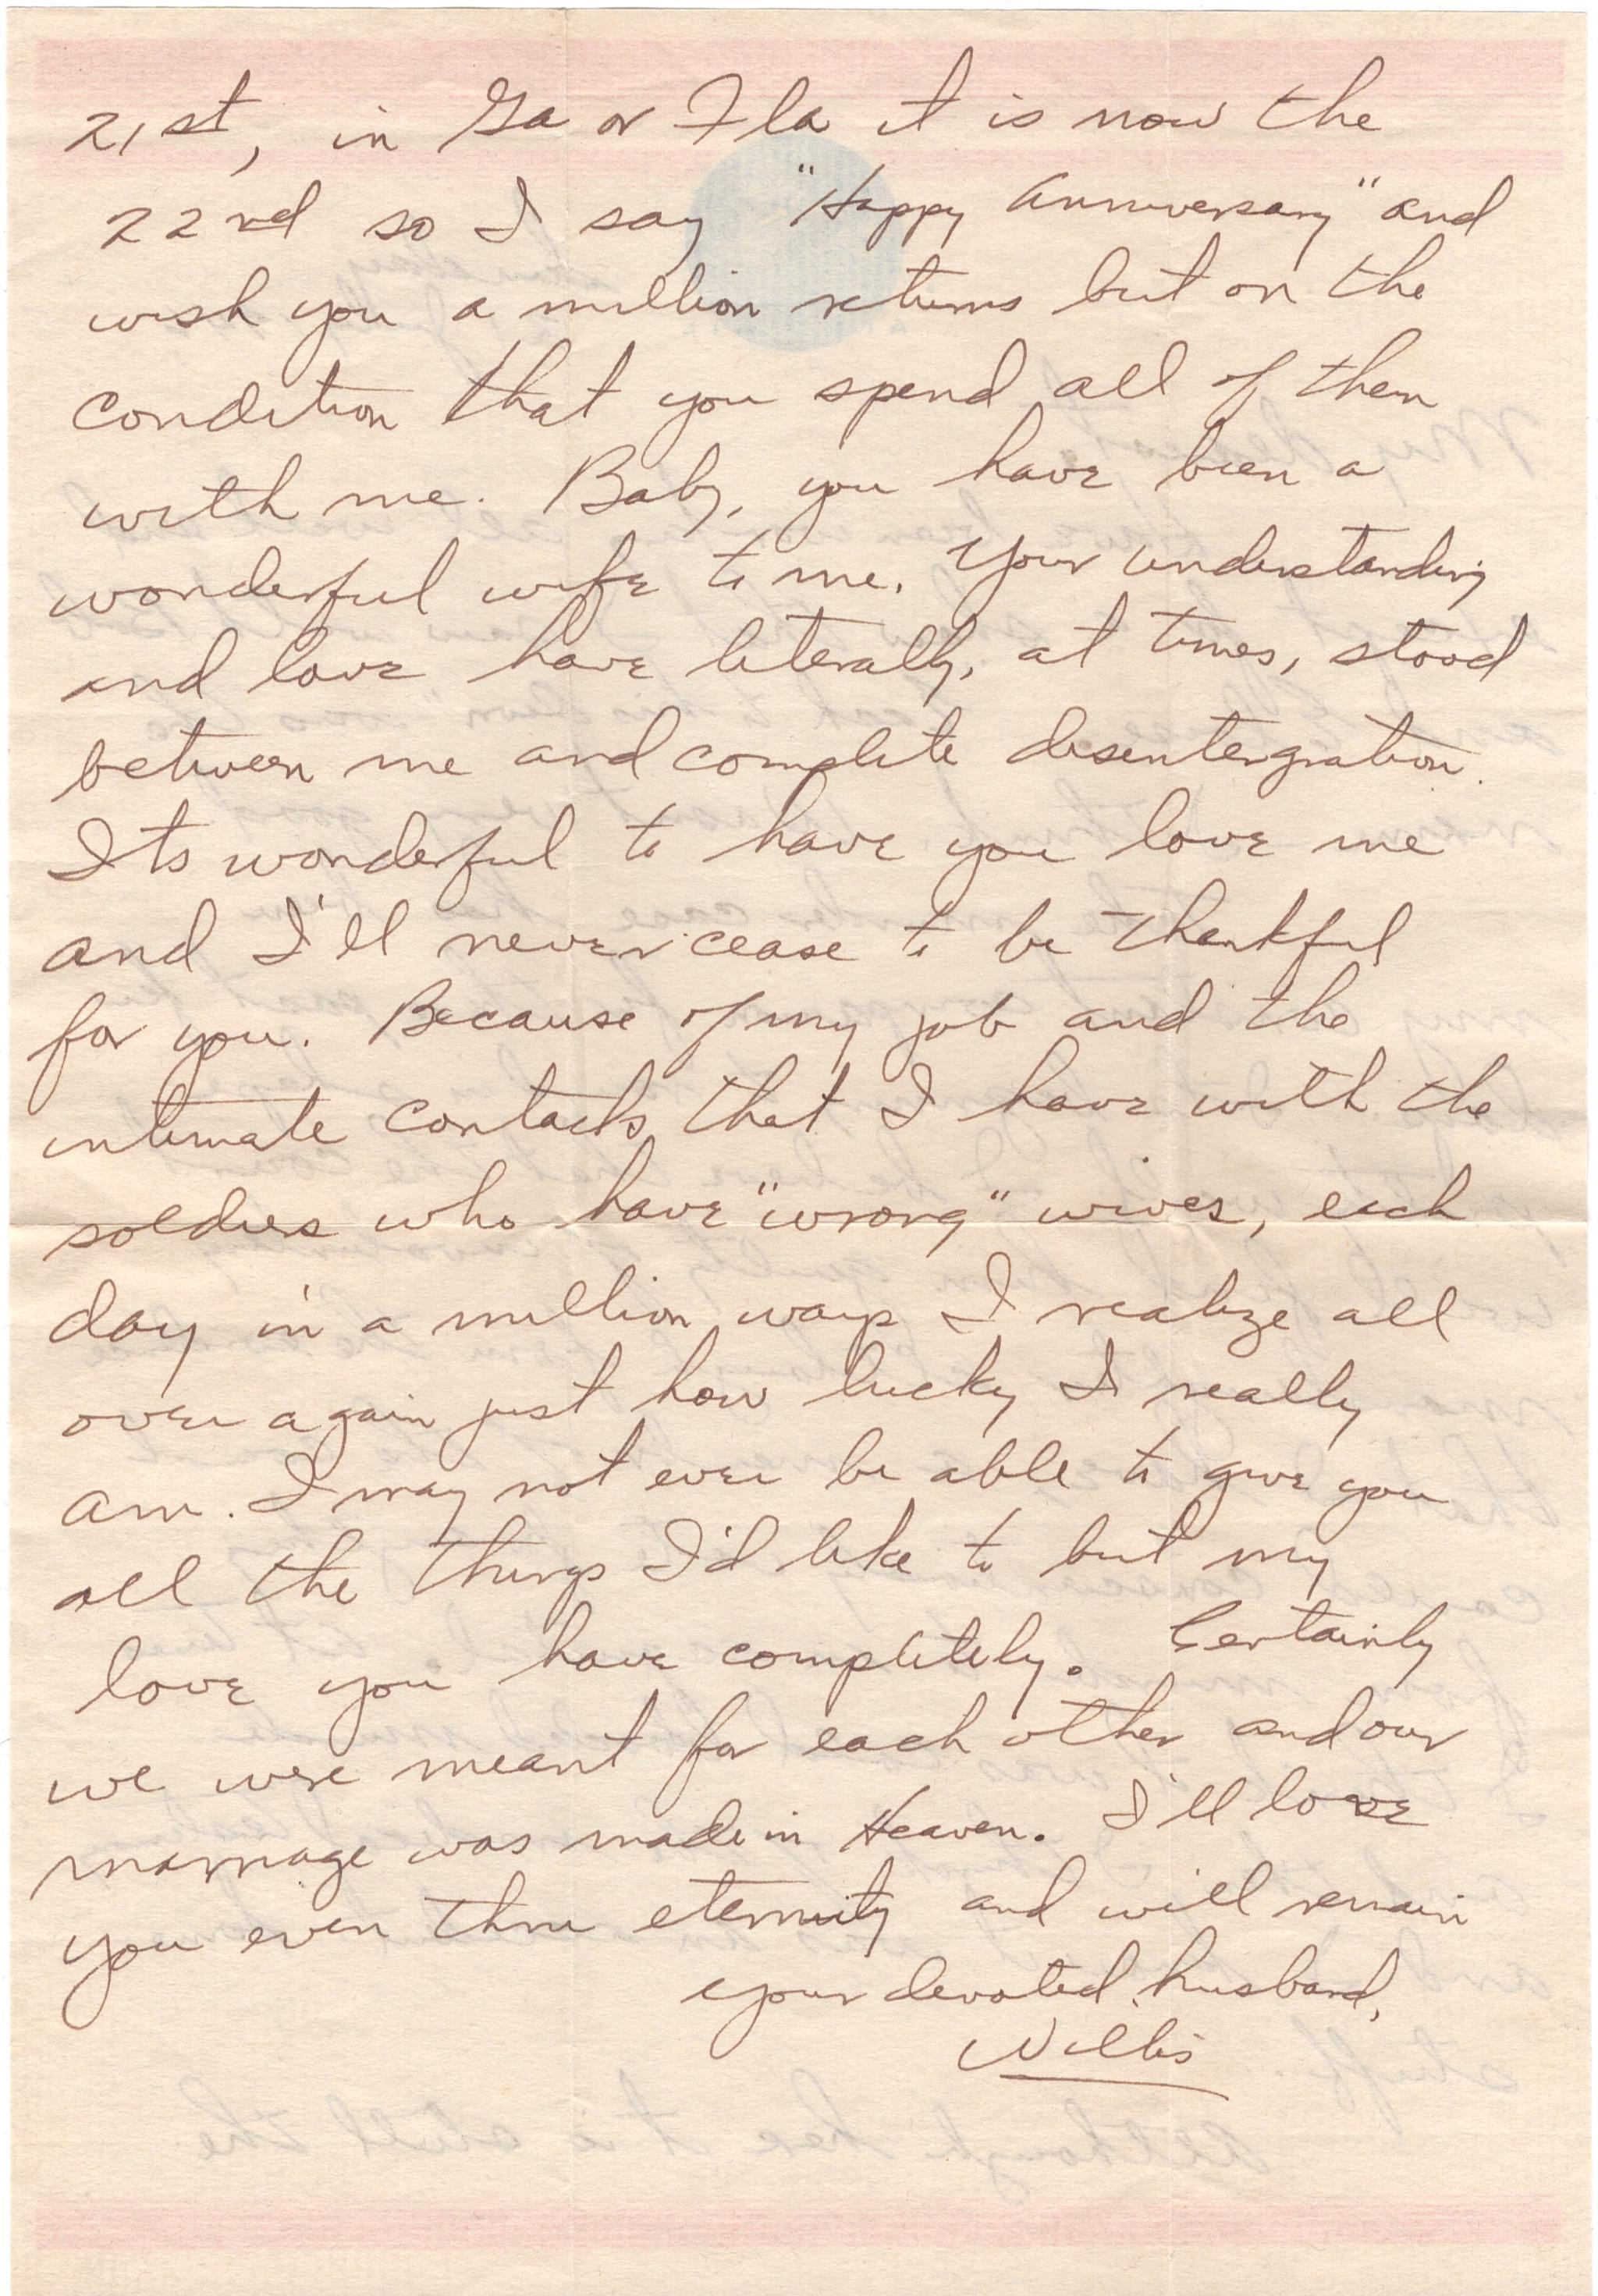 21st, in Ga or Fla it is now the
22nd so I say "Happy Anniversary" and
wish you a million returns but on the
condition that you spend all of them
with me. Baby, you have been a
wonderful wife to me. Your understanding
and love have literally, at times, stood
between me and complete desentergration.
Its wonderful to have you love me
and I'll never cease to be thankful
for you. Because of my job and the
intimate contacts that I have with the
soldiers who have "wrong" wives, each
day in a million ways I realize all
over again just how lucky I really
am. I may not ever be able to give you
all the things I'd like to but my
love you have completely. Certainly
we were meant for each other and our
marriage was made in Heaven. I'll love
you even thru eternity and will remain
your devoted husband,
Willis
Although here it is still the